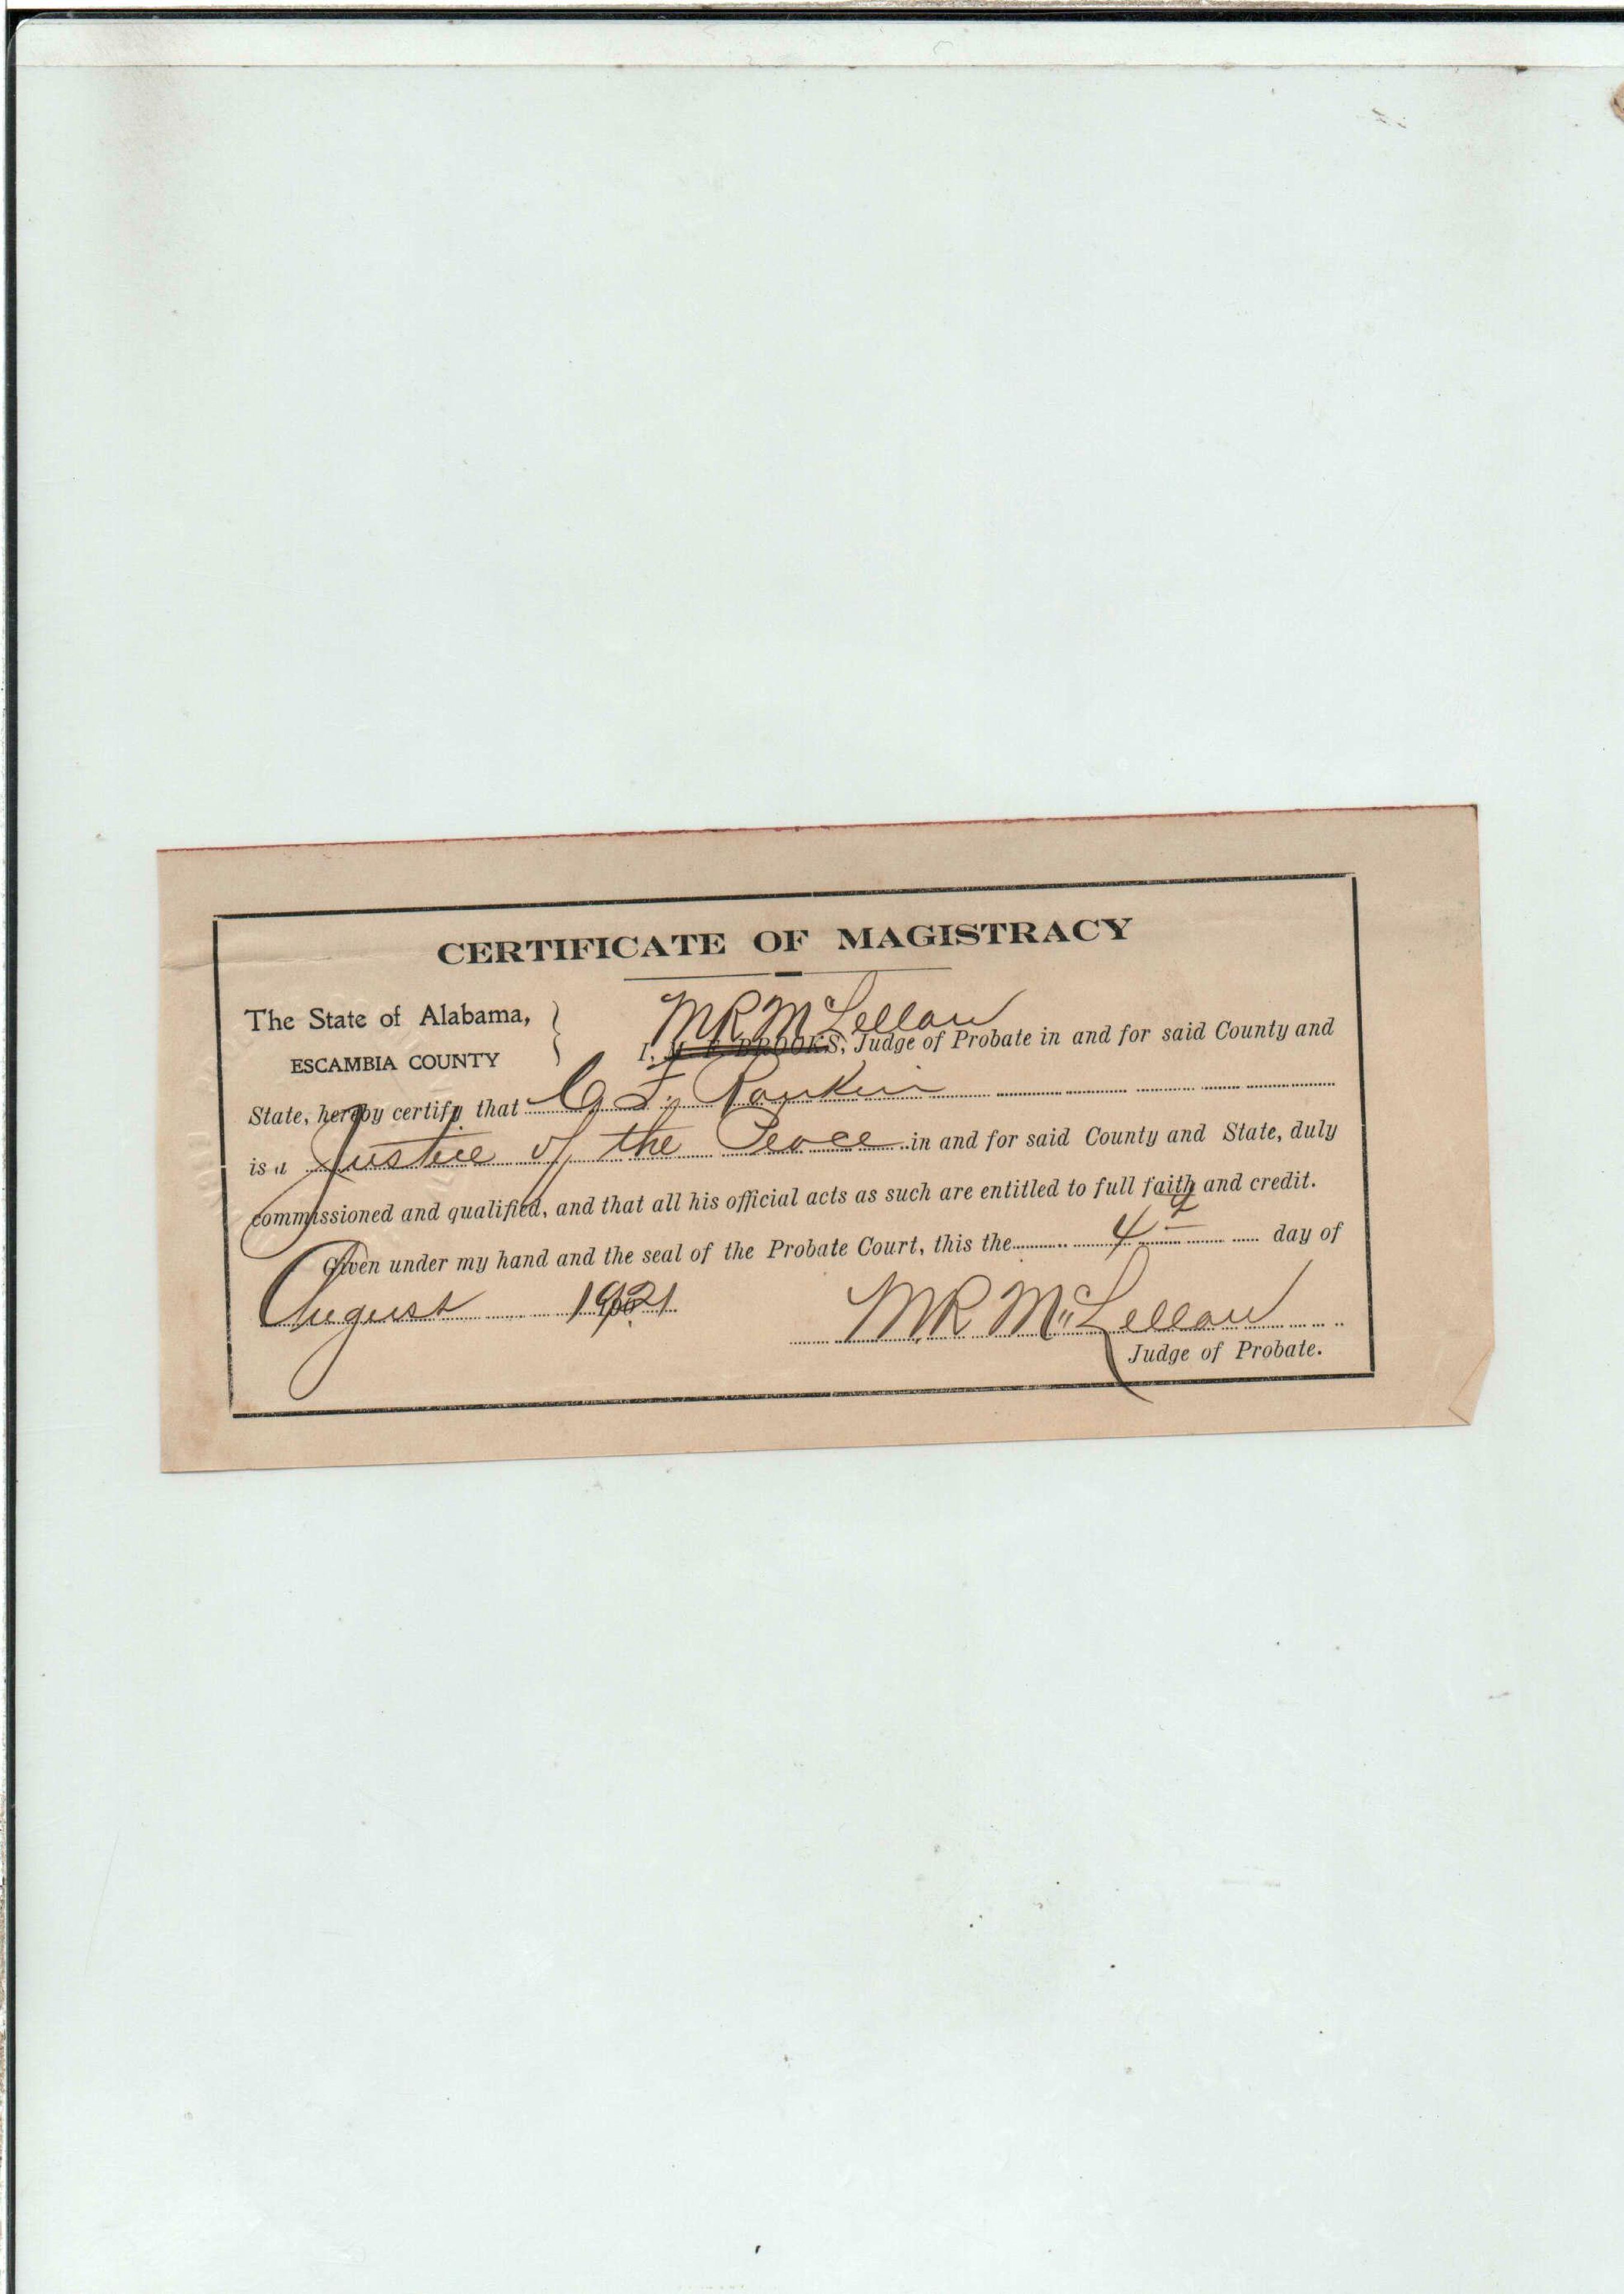 CERTIFICATE OF MAGISTRACY
The State of Alabama,
ESCAMBIA COUNTY
M R McLellan
I, BROOKS, Judge of Probate in and for said County and
State, hereby certify that C. F. Rankin
is a Justice of the Peace in and for said County and State, duly
commissioned and qualified, and that all his official acts as such are entitled to full faith and credit.
Given under my hand and the seal of the Probate Court, this the 4th day of
August 1921
M R McLellan
Judge of Probate.